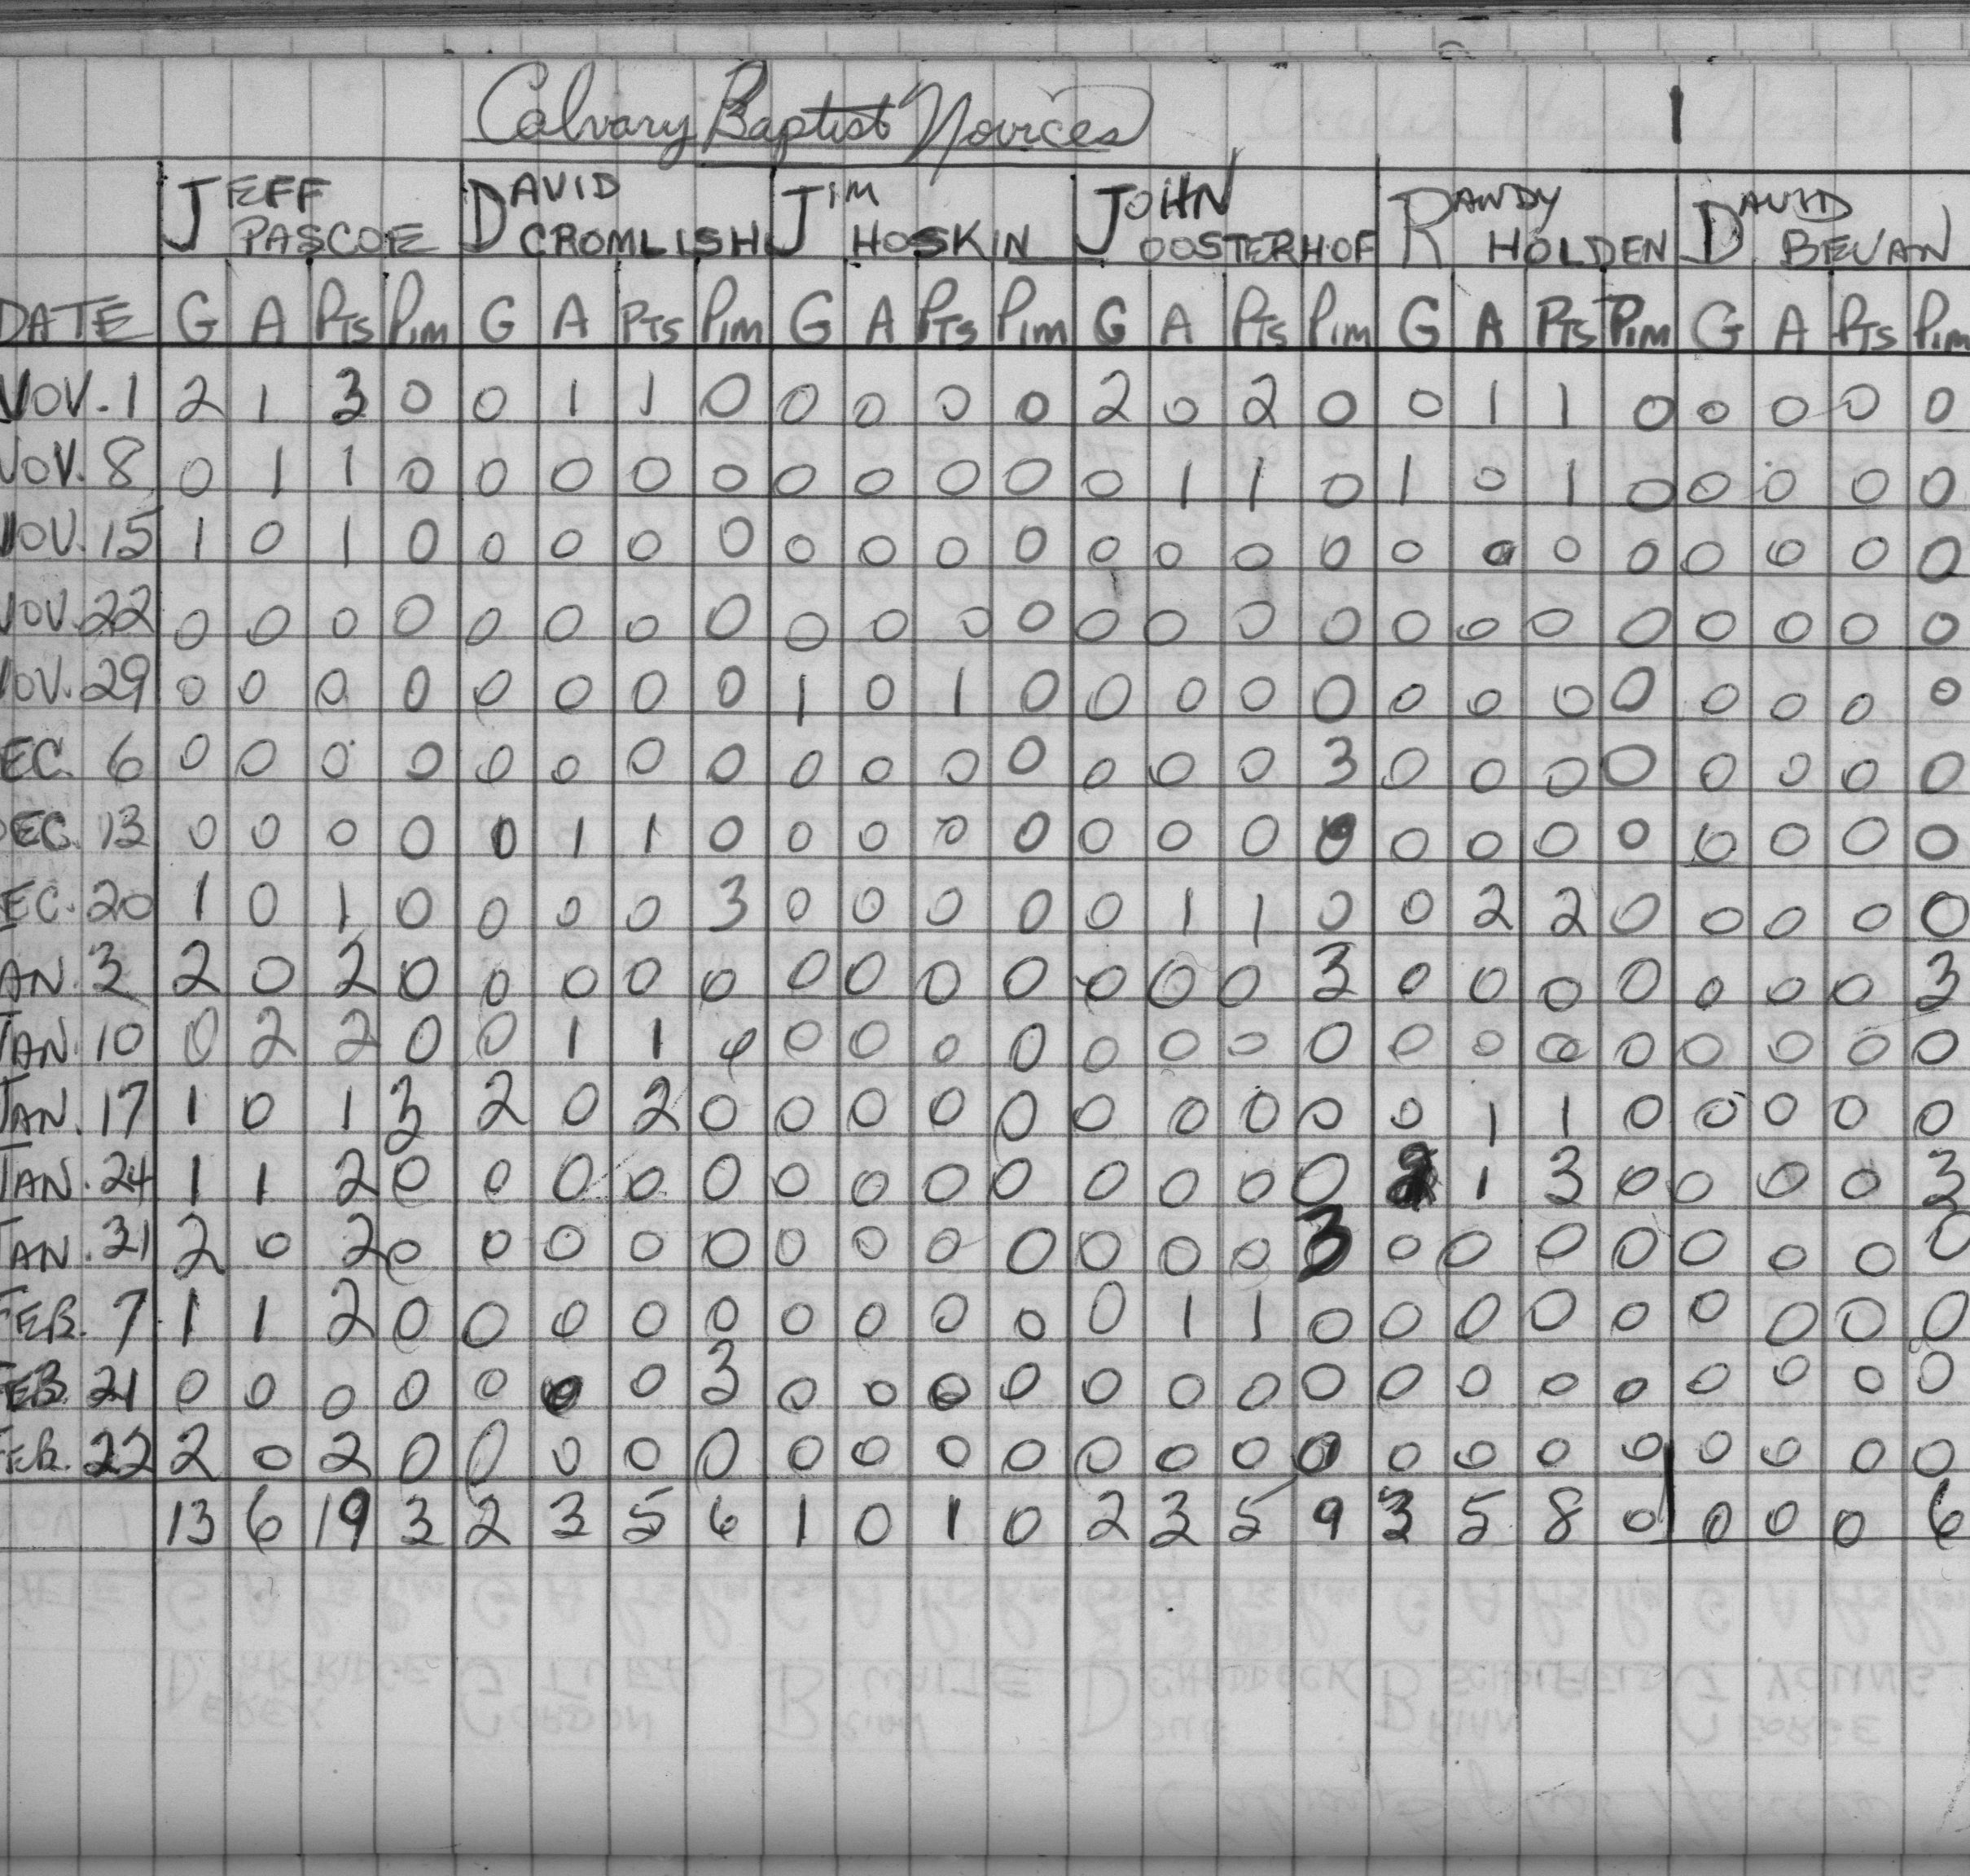 Calvary Baptist Novices
JEFF DAVID JIM JOHN RANDY DAVID
PASCOE CROMLISH HOSKIN OOSTERHOF HOLDEN BEVAN
DATE G A PTS PIM G A PTS PIM G A PTS PIM G A PTS PIM G A PTS PIM G A PTS PIM
NOV. 1 2 1 3 0 0 1 1 0 0 0 0 0 2 0 2 0 0 1 1 0 0 0 0 0
NOV. 8 0 1 1 0 0 0 0 0 0 0 0 0 0 1 1 0 1 0 1 0 0 0 0 0
NOV. 15 1 0 1 0 0 0 0 0 0 0 0 0 0 0 0 0 0 0 0 0 0 0 0 0
NOV. 22 0 0 0 0 0 0 0 0 0 0 0 0 0 0 0 0 0 0 0 0 0 0 0 0
NOV. 29 0 0 0 0 0 0 0 0 1 0 1 0 0 0 0 0 0 0 0 0 0 0 0 0
EC. 6 0 0 0 0 0 0 0 0 0 0 0 0 0 0 0 3 0 0 0 0 0 0 0 0
DEC. 13 0 0 0 0 0 1 1 0 0 0 0 0 0 0 0 0 0 0 0 0 0 0 0 0
EC. 20 1 0 1 0 0 0 0 3 0 0 0 0 0 1 1 0 0 2 2 0 0 0 0 0
AN. 3 2 0 2 0 0 0 0 0 0 0 0 0 0 0 0 3 0 0 0 0 0 0 0 3
JAN. 10 0 2 2 0 0 1 1 0 0 0 0 0 0 0 0 0 0 0 0 0 0 0 0 0
JAN. 17 1 0 1 3 2 0 2 0 0 0 0 0 0 0 0 0 0 1 1 0 0 0 0 0
JAN. 24 1 1 2 0 0 0 0 0 0 0 0 0 0 0 0 0 2 1 3 0 0 0 0 3
JAN. 31 2 0 2 0 0 0 0 0 0 0 0 0 0 0 0 3 0 0 0 0 0 0 0 0
FEB. 7 1 1 2 0 0 0 0 0 0 0 0 0 0 1 1 0 0 0 0 0 0 0 0 0
FEB. 21 0 0 0 0 0 0 0 3 0 0 0 0 0 0 0 0 0 0 0 0 0 0 0 0
FEB. 22 2 0 2 0 0 0 0 0 0 0 0 0 0 0 0 0 0 0 0 0 0 0 0 0
13 6 19 3 2 3 5 6 1 0 1 0 2 3 5 9 3 5 8 0 0 0 0 6